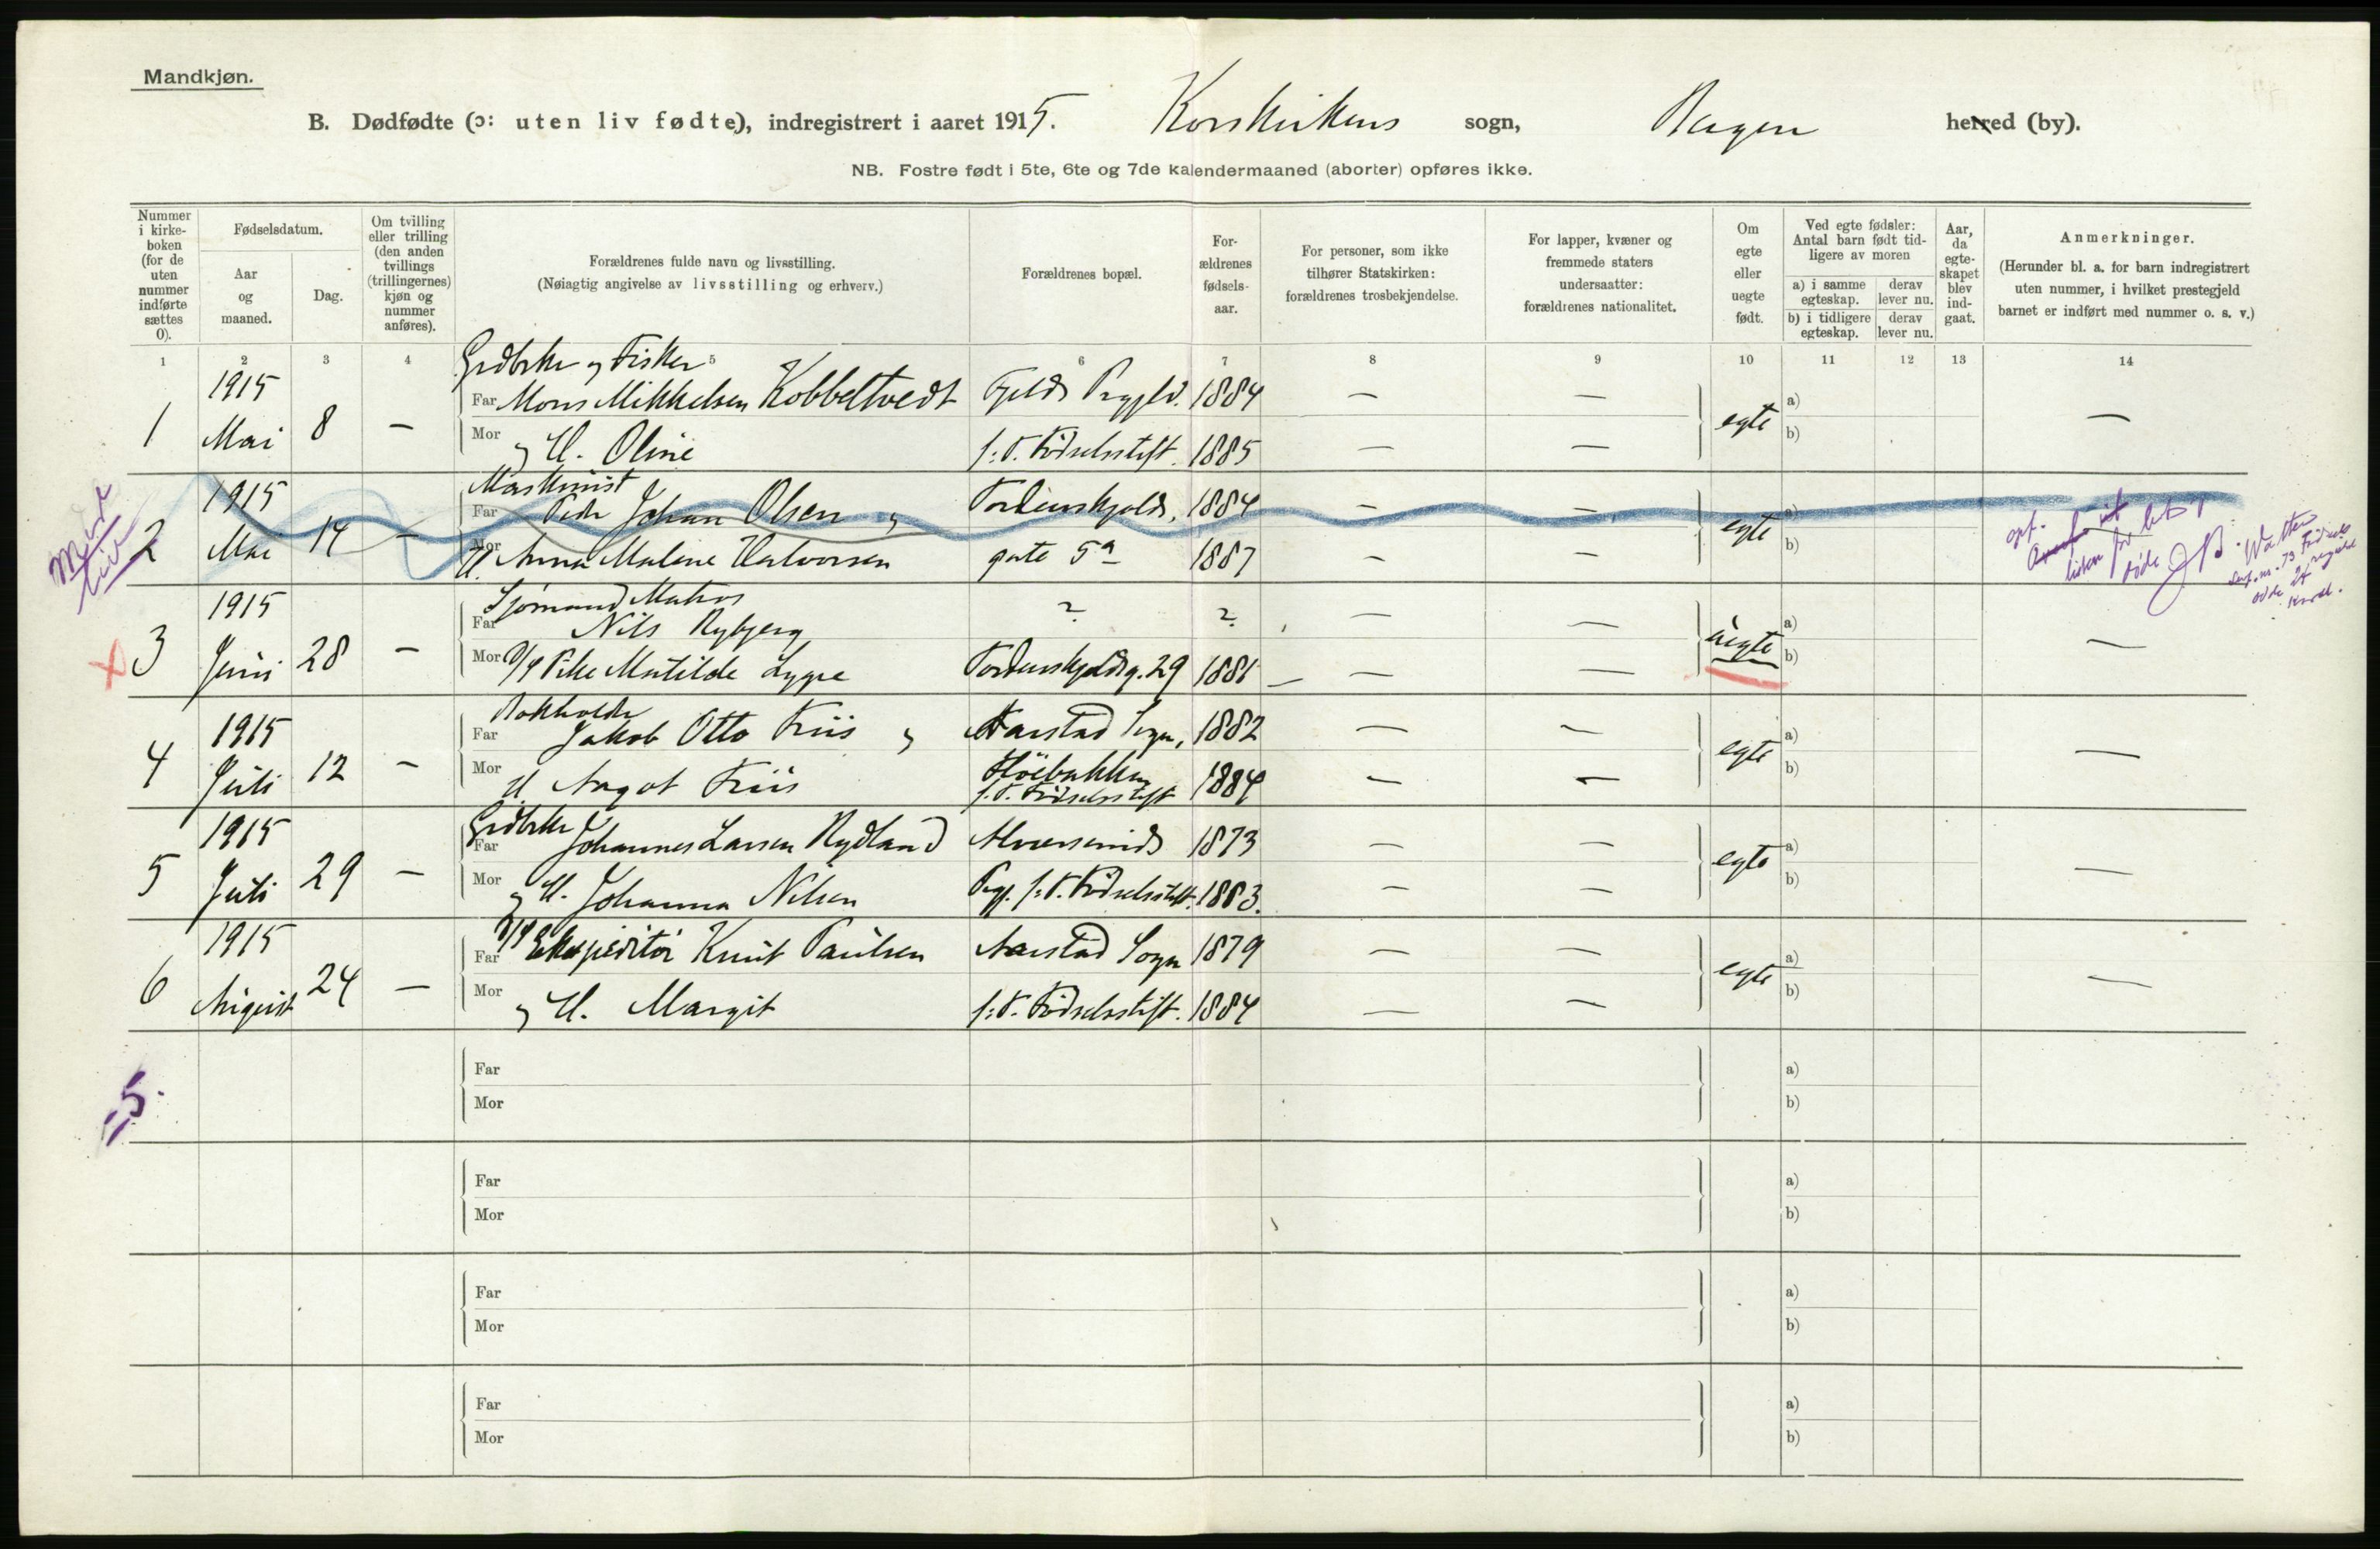 Mandkjøn.
B. Dødfødte (ɔ: uten liv fødte), indregistrert i aaret 1915. Korskirkens sogn, herred (by).
NB. Fostre født i 5te, 6te og 7de kalendermaaned (aborter) opføres ikke.
Nummer i kirke-boken (for de uten nummer indførte sættes 0).
Fødselsdatum.
Aar og maaned.
Dag.
Om tvilling eller trilling (den anden tvillings (trillingernes) kjøn og nummer anføres).
Forældrenes fulde navn og livsstilling.
(Nøiagtig angivelse av livsstilling og erhverv.)
Forældrenes bopæl.
For-ældrenes fødsels-aar.
For personer, som ikke tilhører Statskirken: forældrenes trosbekjendelse.
For lapper, kvæner og fremmede staters undersaatter: forældrenes nationalitet.
Om egte eller uegte født.
Ved egte fødsler: Antal barn født tid-ligere av moren
a) i samme egteskap.
derav lever nu.
b) i tidligere egteskap.
derav lever nu.
Aar, da egte-skapet blev ind-gaat.
Anmerkninger.
(Herunder bl. a. for barn indregistrert uten nummer, i hvilket prestegjeld barnet er indført med nummer o. s. v.)
1 2 3 4 5 6 7 8 9 10 11 12 13 14
Grdbrker og Fisker
1915 Far Mons Mikkelsen Kobbeltvedt Fjelds Prgjld. 1884 — — a)
1 Mai 8 — Mor og H. Oline f: T. Fødselsstift. 1885 — — egte b) —
Maskinist
1915 Far Peder Johan Olsen og Tordenskjolds, 1884 — — a)
2 Mai 14 — Mor H. Anna Malene Halvorsen gate 5a 1887 — — egte b)
Med liv
Sjømand Matros
1915 Far Nils Rybjerg ? ? — — a)
x 3 Juni 28 — Mor Pike Matilde Lygre Tordenskjoldsg. 29 1881 — — uegte b) —
1915 Far Jakob Otto Friis og Aarstad Sogn, 1882 — — a)
4 Juli 12 — Mor H Aagot Friis f. T. Fødselsstift 1884 — — egte b) —
Grdbrker
1915 Far Johannes Larsen Rydland 1873 — — a)
5 Juli 29 — Mor og H. Johanna Nilsen Pgj. f: T. Fødselsstift. 1883. — — egte b) —
1915 Far Ekspeditør Knut Paulsen Aarstad Sogn 1879 — — a)
6 August 24 — Mor og H. Margit f: T. Fødselsstift. 1884 — — egte b) —
Far a)
Mor b)
5.
Far a)
Mor b)
Far a)
Mor b)
Far a)
Mor b)